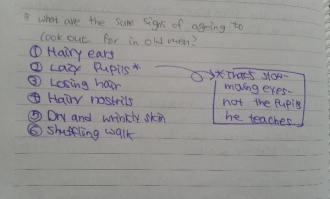 what are the sure signs of ageing to
look out for in old men?
① Hairy ears
② Lazy Pupils*
③ Losing hair
④ Hairy nostrils
⑤ Dry and wrinkly skin
⑥ Shuffling walk
* That's slow-
moving eyes-
not the Pupils
he teaches.